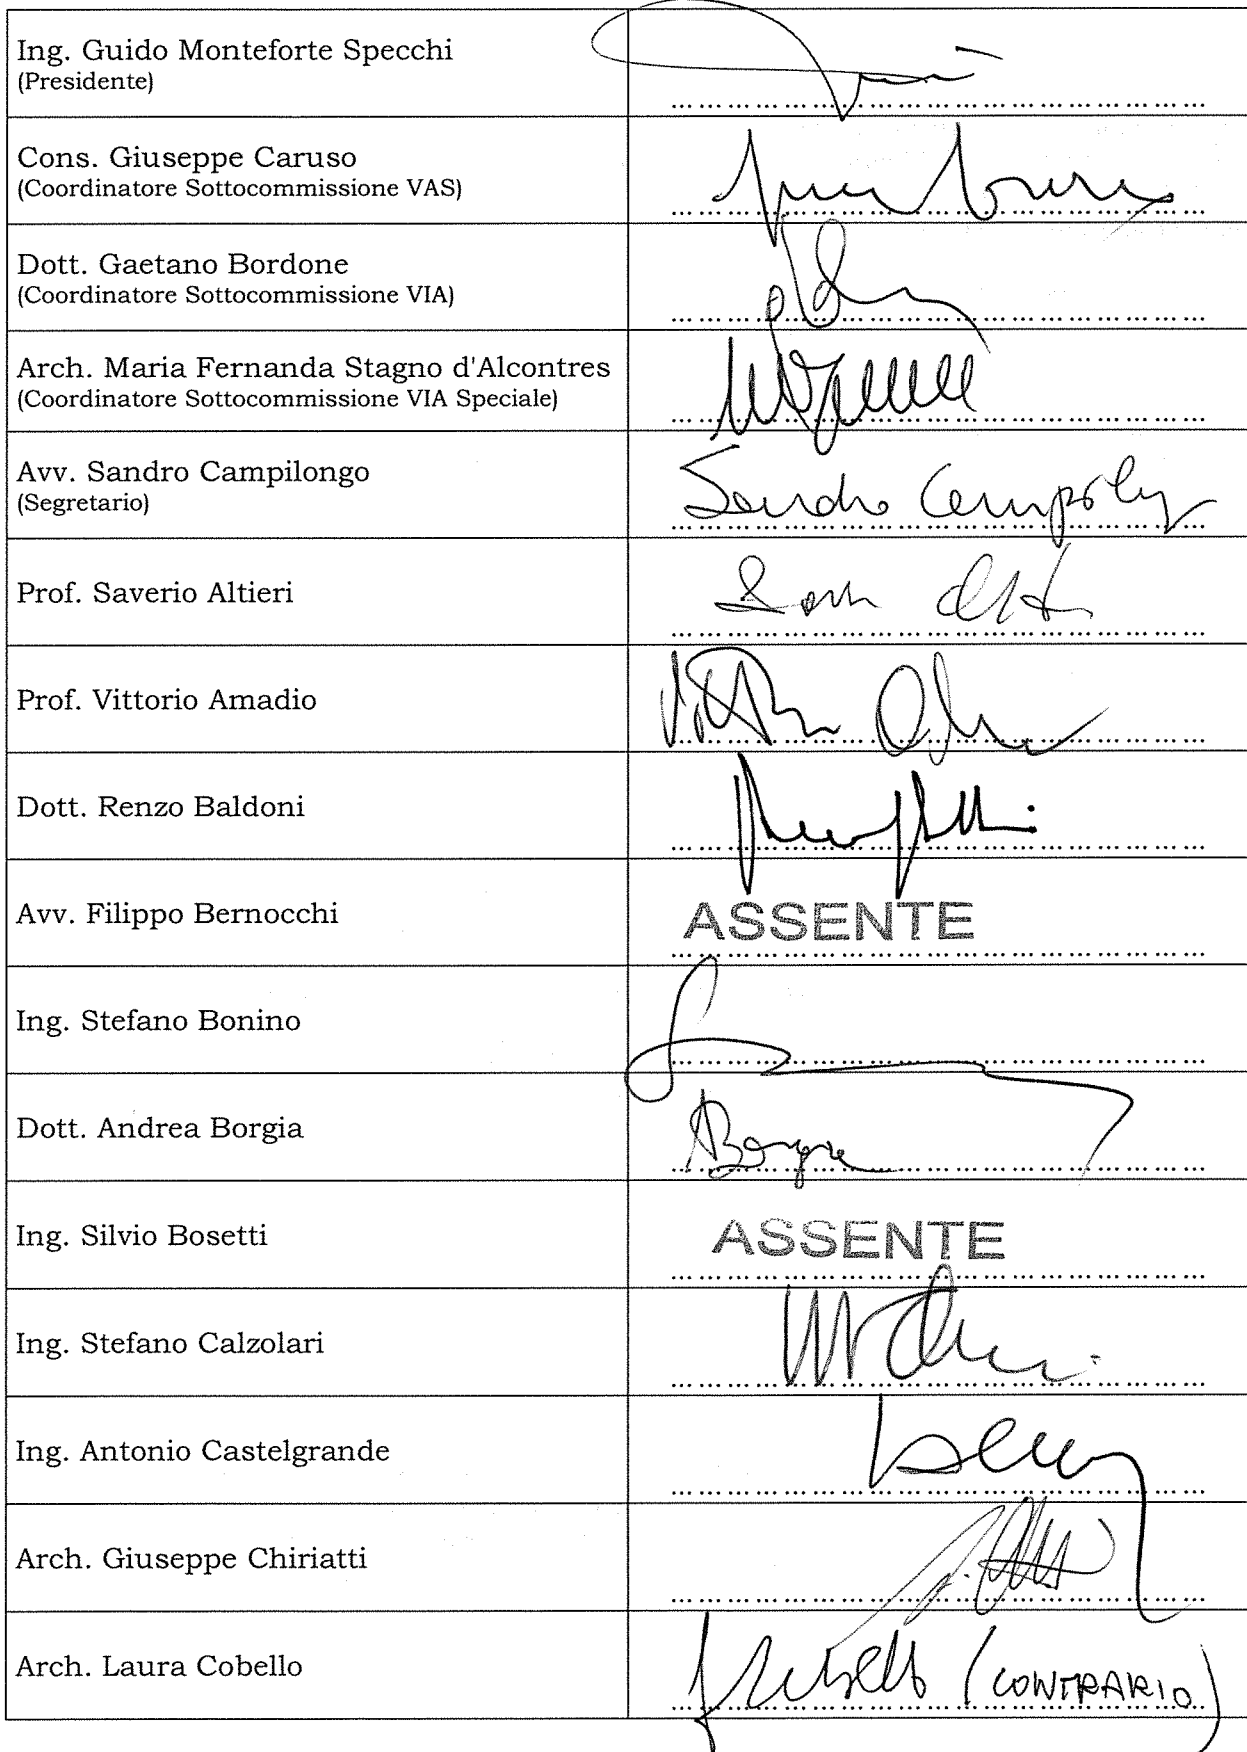 Ing. Guido Monteforte Specchi
(Presidente)
Cons. Giuseppe Caruso
(Coordinatore Sottocommissione VAS)
Dott. Gaetano Bordone
(Coordinatore Sottocommissione VIA)
Arch. Maria Fernanda Stagno d'Alcontres
(Coordinatore Sottocommissione VIA Speciale)
Avv. Sandro Campilongo
(Segretario)
Sandro Campilong
Prof. Saverio Altieri
Prof. Vittorio Amadio
Dott. Renzo Baldoni
Avv. Filippo Bernocchi
ASSENTE
Ing. Stefano Bonino
Dott. Andrea Borgia
ABorgia
Ing. Silvio Bosetti
ASSENTE
Ing. Stefano Calzolari
Ing. Antonio Castelgrande
Arch. Giuseppe Chiriatti
Arch. Laura Cobello
(CONTRARIO)